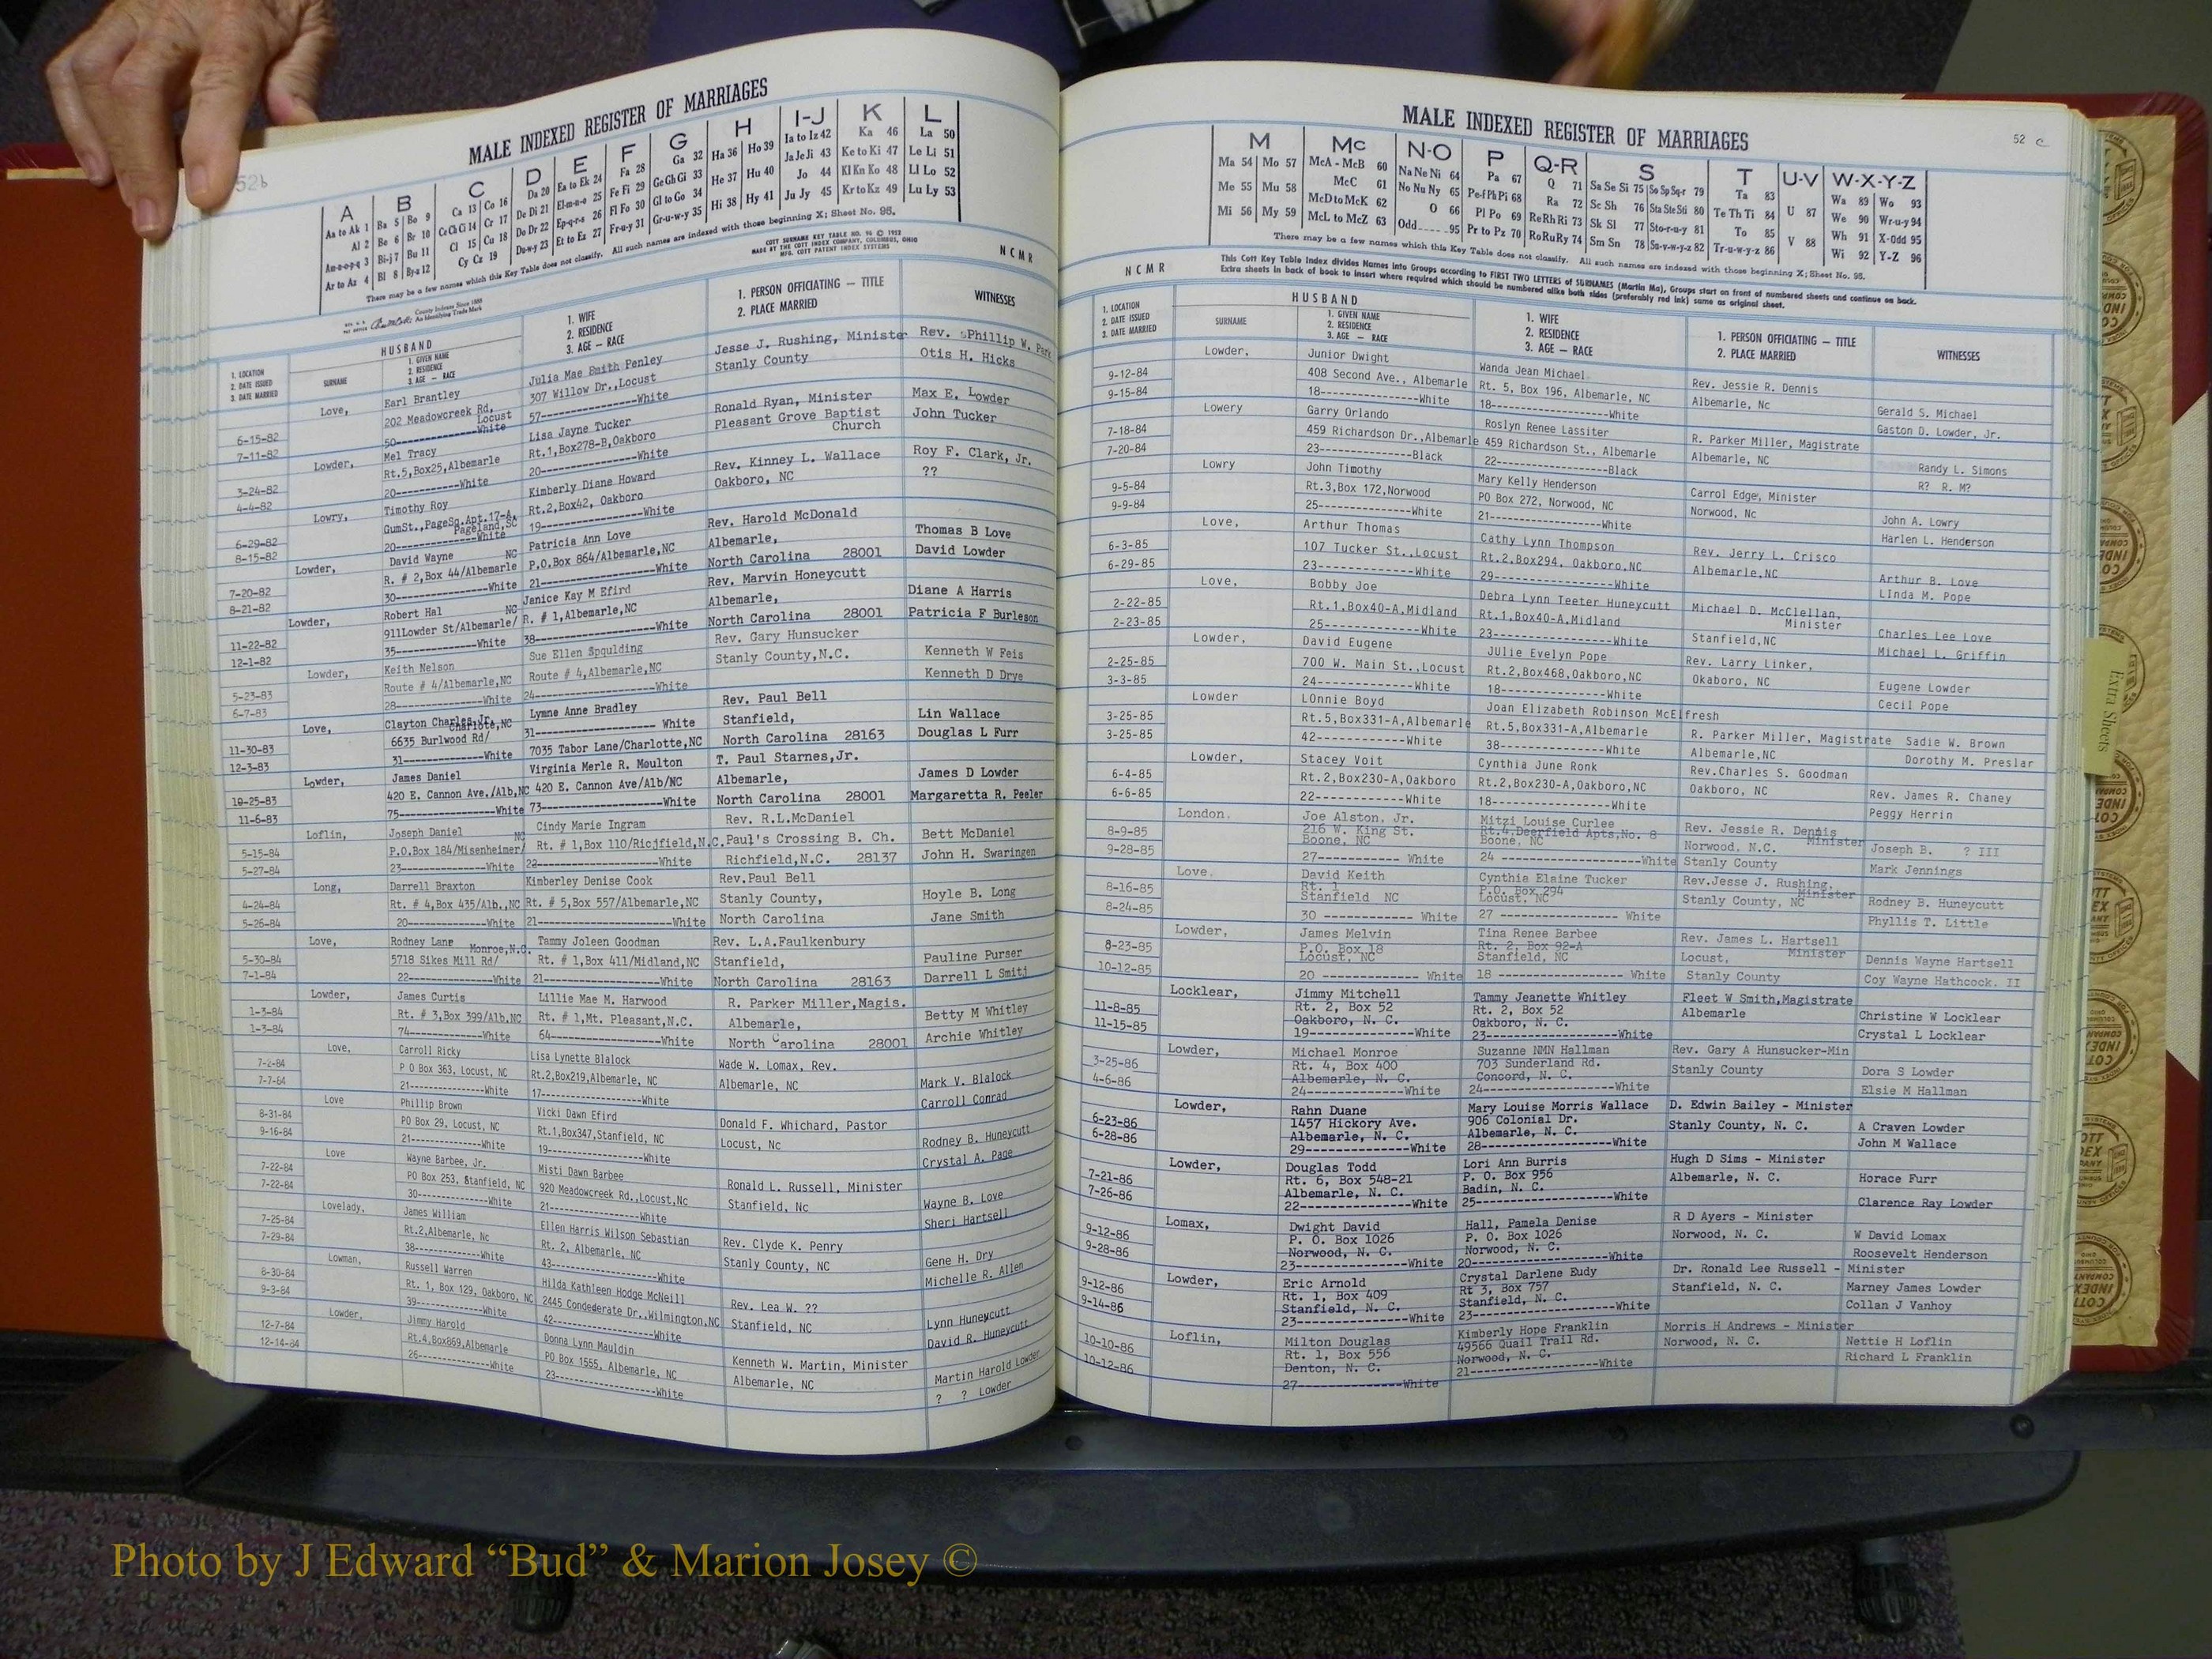 52b
MALE INDEXED REGISTER OF MARRIAGES
A
Aa to Ak 1
Al 2
Am-n-o-p-q 3
Ar to Az 4
B
Ba 5 Bo 9
Be 6 Br 10
Bi-j 7 Bu 11
Bl 8 By-z 12
C
Ca 13 Co 16
Ce Ch Ci 14 Cr 17
Cl 15 Cu 18
Cy Cz 19
D
Da 20
De Di 21
Do Dr 22
Du-w-y 23
E
Ea to Ek 24
El-m-n-o 25
Ep-q-r-s 26
Et to Ez 27
F
Fa 28
Fe Fi 29
Fl Fo 30
Fr-u-y 31
G
Ga 32
Ge Gh Gi 33
Gl to Go 34
Gr-u-w-y 35
H
Ha 36 Ho 39
He 37 Hu 40
Hi 38 Hy 41
I-J
Ia to Iz 42
Ja Je Ji 43
Jo 44
Ju Jy 45
K
Ka 46
Ke to Ki 47
Kl Kn Ko 48
Kr to Kz 49
L
La 50
Le Li 51
Ll Lo 52
Lu Ly 53
There may be a few names which this Key Table does not classify. All such names are indexed with those beginning X; Sheet No. 95.
COTT SURNAME KEY TABLE NO. 96 © 1952
MADE BY THE COTT INDEX COMPANY, COLUMBUS, OHIO
MFG. COTT PATENT INDEX SYSTEMS
County Indexes Since 1888
An Identifying Trade Mark
N C M R
HUSBAND
1. LOCATION
2. DATE ISSUED
3. DATE MARRIED
SURNAME
1. GIVEN NAME
2. RESIDENCE
3. AGE — RACE
1. WIFE
2. RESIDENCE
3. AGE — RACE
1. PERSON OFFICIATING — TITLE
2. PLACE MARRIED
WITNESSES
Love, Earl Brantley Julia Mae Smith Penley Jesse J. Rushing, Minister Rev. Phillip W. Park
6-15-82 202 Meadowcreek Rd, Locust 307 Willow Dr.,Locust Stanly County Otis H. Hicks
7-11-82 50-------------White 57-------------White
Lowder, Mel Tracy Lisa Jayne Tucker Ronald Ryan, Minister Max E. Lowder
3-24-82 Rt.5,Box25,Albemarle Rt.1,Box278-B,Oakboro Pleasant Grove Baptist Church John Tucker
4-4-82 20-------------White 20-------------White
Lowry, Timothy Roy Kimberly Diane Howard Rev. Kinney L. Wallace Roy F. Clark, Jr.
6-29-82 GumSt.,PageSq.Apt.17-A, Pageland,SC Rt.2,Box42, Oakboro Oakboro, NC ??
8-15-82 20-------------White 19-------------White
Lowder, David Wayne NC Patricia Ann Love Rev. Harold McDonald Thomas B Love
7-20-82 R. # 2,Box 44/Albemarle P.O.Box 864/Albemarle,NC Albemarle, David Lowder
8-21-82 30-------------White 21-------------White North Carolina 28001
Lowder, Robert Hal NC Janice Kay M Efird Rev. Marvin Honeycutt Diane A Harris
11-22-82 911Lowder St/Albemarle/ R. # 1,Albemarle,NC Albemarle, Patricia F Burleson
12-1-82 35-------------White 38-------------White North Carolina 28001
Lowder, Keith Nelson Sue Ellen Spoulding Rev. Gary Hunsucker Kenneth W Feis
5-23-83 Route # 4/Albemarle,NC Route # 4,Albemarle,NC Stanly County,N.C. Kenneth D Drye
6-7-83 28-------------White 24-------------White
Love, Clayton Charles,Jr. Charlote,NC Lynne Anne Bradley Rev. Paul Bell Lin Wallace
11-30-83 6635 Burlwood Rd/ 31------------- White Stanfield, Douglas L Furr
12-3-83 31-------------White 7035 Tabor Lane/Charlotte,NC North Carolina 28163
Lowder, James Daniel Virginia Merle R. Moulton T. Paul Starnes,Jr. James D Lowder
10-25-83 420 E. Cannon Ave./Alb,NC 420 E. Cannon Ave/Alb/NC Albemarle, Margaretta R. Peeler
11-6-83 75-------------White 73-------------White North Carolina 28001
Loflin, Joseph Daniel NC Cindy Marie Ingram Rev. R.L.McDaniel Bett McDaniel
5-15-84 P.O.Box 184/Misenheimer/ Rt. # 1,Box 110/Ricjfield,N.C. Paul's Crossing B. Ch. John H. Swaringen
5-27-84 23-------------White 22-------------White Richfield,N.C. 28137
Long, Darrell Braxton Kimberley Denise Cook Rev.Paul Bell Hoyle B. Long
4-24-84 Rt. # 4,Box 435/Alb.,NC Rt. # 5,Box 557/Albemarle,NC Stanly County, Jane Smith
5-26-84 20-------------White 21-------------White North Carolina
Love, Rodney Lane Monroe,N.C. Tammy Joleen Goodman Rev. L.A.Faulkenbury Pauline Purser
5-30-84 5718 Sikes Mill Rd/ Rt. # 1,Box 411/Midland,NC Stanfield, Darrell L Smitj
7-1-84 22-------------White 21-------------White North Carolina 28163
Lowder, James Curtis Lillie Mae M. Harwood R. Parker Miller,Magis. Betty M Whitley
1-3-84 Rt. # 3,Box 399/Alb.NC Rt. # 1,Mt. Pleasant,N.C. Albemarle, Archie Whitley
1-3-84 74-------------White 64-------------White North Carolina 28001
Love, Carroll Ricky Lisa Lynette Blalock Wade W. Lomax, Rev. Mark V. Blalock
7-2-84 P O Box 363, Locust, NC Rt.2,Box219,Albemarle, NC Albemarle, NC Carroll Conrad
7-7-84 21-------------White 17-------------White
Love Phillip Brown Vicki Dawn Efird Donald F. Whichard, Pastor Rodney B. Huneycutt
8-31-84 PO Box 29, Locust, NC Rt.1,Box347,Stanfield, NC Locust, Nc Crystal A. Page
9-16-84 21-------------White 19-------------White
Love Wayne Barbee, Jr. Misti Dawn Barbee Ronald L. Russell, Minister Wayne B. Love
7-22-84 PO Box 253, Stanfield, NC 920 Meadowcreek Rd.,Locust,Nc Stanfield, Nc Sheri Hartsell
7-22-84 30-------------White 21-------------White
Lovelady, James William Ellen Harris Wilson Sebastian Rev. Clyde K. Penry Gene H. Dry
7-25-84 Rt.2,Albemarle, Nc Rt. 2, Albemarle, NC Stanly County, NC Michelle R. Allen
7-29-84 38-------------White 43-------------White
Lowman, Russell Warren Hilda Kathleen Hodge McNeill Rev. Lea W. ?? Lynn Huneycutt
8-30-84 Rt. 1, Box 129, Oakboro, NC 2445 Condederate Dr.,Wilmington,NC Stanfield, NC David R. Huneycutt
9-3-84 39-------------White 42-------------White
Lowder, Jimmy Harold Donna Lynn Mauldin Kenneth W. Martin, Minister Martin Harold Lowder
12-7-84 Rt.4,Box869,Albemarle PO Box 1555, Albemarle, NC Albemarle, NC ? ? Lowder
12-14-84 26-------------White 23-------------White
52 c
MALE INDEXED REGISTER OF MARRIAGES
M
Ma 54 Mo 57
Me 55 Mu 58
Mi 56 My 59
Mc
McA - McB 60
McC 61
McD to McK 62
McL to McZ 63
N-O
Na Ne Ni 64
No Nu Ny 65
O 66
Odd 95
P
Pa 67
Pe-f Ph Pi 68
Pl Po 69
Pr to Pz 70
Q-R
Q 71
Ra 72
Re Rh Ri 73
Ro Ru Ry 74
S
Sa Se Si 75 So Sp Sq-r 79
Sc Sh 76 Sta Ste Sti 80
Sk Sl 77 Sto-r-u-y 81
Sm Sn 78 Su-v-w-y-z 82
T
Ta 83
Te Th Ti 84
To 85
Tr-u-w-y-z 86
U-V
U 87
V 88
W-X-Y-Z
Wa 89 Wo 93
We 90 Wr-u-y 94
Wh 91 X-Odd 95
Wi 92 Y-Z 96
There may be a few names which this Key Table does not classify. All such names are indexed with those beginning X; Sheet No. 95.
This Cott Key Table Index divides Names into Groups according to FIRST TWO LETTERS of SURNAMES (Martin Ma), Groups start on front of numbered sheets and continue on back.
Extra sheets in back of book to insert where required which should be numbered alike both sides (preferably red ink) same as original sheet.
N C M R
HUSBAND
1. LOCATION
2. DATE ISSUED
3. DATE MARRIED
SURNAME
1. GIVEN NAME
2. RESIDENCE
3. AGE — RACE
1. WIFE
2. RESIDENCE
3. AGE — RACE
1. PERSON OFFICIATING — TITLE
2. PLACE MARRIED
WITNESSES
Lowder, Junior Dwight Wanda Jean Michael Rev. Jessie R. Dennis Gerald S. Michael
9-12-84 408 Second Ave., Albemarle Rt. 5, Box 196, Albemarle, NC Albemarle, Nc Gaston D. Lowder, Jr.
9-15-84 18-------------White 18-------------White
Lowery Garry Orlando Roslyn Renee Lassiter R. Parker Miller, Magistrate Randy L. Simons
7-18-84 459 Richardson Dr.,Albemarle 459 Richardson St., Albemarle Albemarle, NC R? R. M?
7-20-84 23-------------Black 22-------------Black
Lowry John Timothy Mary Kelly Henderson Carrol Edge, Minister John A. Lowry
9-5-84 Rt.3,Box 172,Norwood PO Box 272, Norwood, NC Norwood, Nc Harlen L. Henderson
9-9-84 25-------------White 21-------------White
Love, Arthur Thomas Cathy Lynn Thompson Rev. Jerry L. Crisco Arthur B. Love
6-3-85 107 Tucker St.,Locust Rt.2,Box294, Oakboro,NC Albemarle,NC LInda M. Pope
6-29-85 23-------------White 29-------------White
Love, Bobby Joe Debra Lynn Teeter Huneycutt Michael D. McClellan, Minister Charles Lee Love
2-22-85 Rt.1,Box40-A,Midland Rt.1,Box40-A,Midland Stanfield,NC Michael L. Griffin
2-23-85 25-------------White 23-------------White
Lowder, David Eugene Julie Evelyn Pope Rev. Larry Linker, Eugene Lowder
2-25-85 700 W. Main St.,Locust Rt.2,Box468,Oakboro,NC Okaboro, NC Cecil Pope
3-3-85 24-------------White 18-------------White
Lowder LOnnie Boyd Joan Elizabeth Robinson McElfresh R. Parker Miller, Magistrate Sadie W. Brown
3-25-85 Rt.5,Box331-A,Albemarle Rt.5,Box331-A,Albemarle Albemarle,NC Dorothy M. Preslar
3-25-85 42-------------White 38-------------White
Lowder, Stacey Voit Cynthia June Ronk Rev.Charles S. Goodman Rev. James R. Chaney
6-4-85 Rt.2,Box230-A,Oakboro Rt.2,Box230-A,Oakboro,NC Oakboro, NC Peggy Herrin
6-6-85 22-------------White 18-------------White
London, Joe Alston, Jr. Mitzi Louise Curlee Rev. Jessie R. Dennis Minister Joseph B. ? III
8-9-85 216 W. King St. Rt.4,Deerfield Apts,No. 8 Norwood, N.C. Mark Jennings
9-28-85 Boone, NC Boone, NC Stanly County
27------------- White 24 -------------White
Love, David Keith Cynthia Elaine Tucker Rev.Jesse J. Rushing, Minister Rodney B. Huneycutt
8-16-85 Rt. 1 P.O. Box 294 Stanly County, NC Phyllis T. Little
8-24-85 Stanfield NC Locust, NC
30 ------------- White 27 ------------- White
Lowder, James Melvin Tina Renee Barbee Rev. James L. Hartsell Minister Dennis Wayne Hartsell
8-23-85 P.O. Box 18 Rt. 2, Box 92-A Locust, Coy Wayne Hathcock, II
10-12-85 Locust, NC Stanfield, NC Stanly County
20 ------------- White 18 ------------- White
Locklear, Jimmy Mitchell Tammy Jeanette Whitley Fleet W Smith,Magistrate Christine W Locklear
11-8-85 Rt. 2, Box 52 Rt. 2, Box 52 Albemarle Crystal L Locklear
11-15-85 Oakboro, N. C. Oakboro, N. C.
19-------------White 23-------------White
Lowder, Michael Monroe Suzanne NMN Hallman Rev. Gary A Hunsucker-Min Dora S Lowder
3-25-86 Rt. 4, Box 400 703 Sunderland Rd. Stanly County Elsie M Hallman
4-6-86 Albemarle, N. C. Concord, N. C.
24-------------White 24-------------White
Lowder, Rahn Duane Mary Louise Morris Wallace D. Edwin Bailey - Minister A Craven Lowder
6-23-86 1457 Hickory Ave. 906 Colonial Dr. Stanly County, N. C. John M Wallace
6-28-86 Albemarle, N. C. Albemarle, N. C.
29-------------White 28-------------White
Lowder, Douglas Todd Lori Ann Burris Hugh D Sims - Minister Horace Furr
7-21-86 Rt. 6, Box 548-21 P. O. Box 956 Albemarle, N. C. Clarence Ray Lowder
7-26-86 Albemarle, N. C. Badin, N. C.
22-------------White 25-------------White
Lomax, Dwight David Hall, Pamela Denise R D Ayers - Minister W David Lomax
9-12-86 P. O. Box 1026 P. O. Box 1026 Norwood, N. C. Roosevelt Henderson
9-28-86 Norwood, N. C. Norwood, N. C.
23-------------White 20-------------White
Lowder, Eric Arnold Crystal Darlene Eudy Dr. Ronald Lee Russell - Minister Marney James Lowder
9-12-86 Rt. 1, Box 409 Rt 3, Box 757 Stanfield, N. C. Collan J Vanhoy
9-14-86 Stanfield, N. C. Stanfield, N. C.
23-------------White 23-------------White
Loflin, Milton Douglas Kimberly Hope Franklin Morris H Andrews - Minister Nettie H Loflin
10-10-86 Rt. 1, Box 556 49566 Quail Trail Rd. Norwood, N. C. Richard L Franklin
10-12-86 Denton, N. C. Norwood, N. C.
27-------------White 21-------------White
Extra Sheets
Photo by J Edward “Bud” & Marion Josey ©